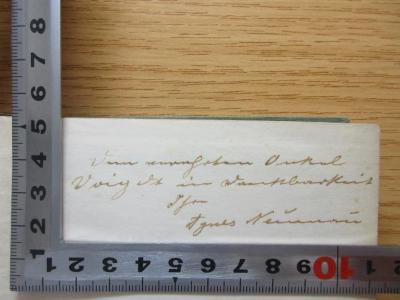 Dem verehrten Onkel
Voigdt in Dankbarkeit
Ihre
Agnes Neumann
8
7
6
5
4
3
2
1
3 2 1 1 2 3 4 5 6 7 8 9 10